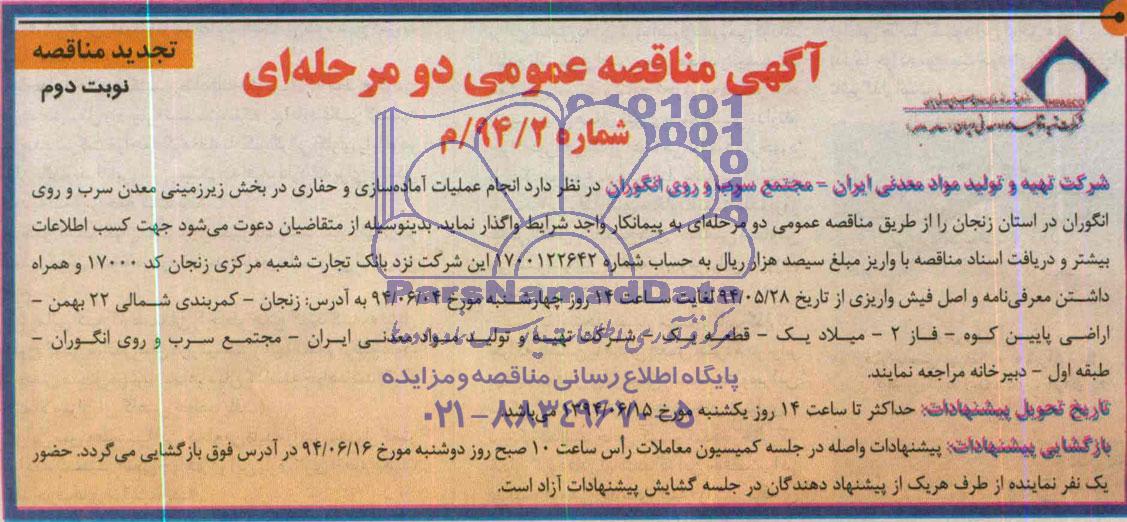 تجدید مناقصه
نوبت دوم
آگهی مناقصه عمومی دو مرحله‌ای
شماره ۹۴/۲/م
IMPASCO
شرکت تهیه و تولید مواد معدنی ایران – مجتمع سرب و روی انگوران در نظر دارد انجام عملیات آماده‌سازی و حفاری در بخش زیرزمینی معدن سرب و روی
انگوران در استان زنجان را از طریق مناقصه عمومی دو مرحله‌ای به پیمانکار واجد شرایط واگذار نماید. بدینوسیله از متقاضیان دعوت می‌شود جهت کسب اطلاعات
بیشتر و دریافت اسناد مناقصه با واریز مبلغ سیصد هزار ریال به حساب شماره ۱۷۰۰۱۲۲۶۴۲ این شرکت نزد بانک تجارت شعبه مرکزی زنجان کد ۱۷۰۰۰ و همراه
داشتن معرفی‌نامه و اصل فیش واریزی از تاریخ ۹۴/۰۵/۲۸ لغایت ساعت ۱۴ روز چهارشنبه مورخ ۹۴/۰۶/۰۴ به آدرس: زنجان – کمربندی شمالی ۲۲ بهمن –
اراضی پایین کوه – فاز ۲ – میلاد یک – قطعه یک – شرکت تهیه و تولید مواد معدنی ایران – مجتمع سرب و روی انگوران –
طبقه اول – دبیرخانه مراجعه نمایند.
تاریخ تحویل پیشنهادات: حداکثر تا ساعت ۱۴ روز یکشنبه مورخ ۱۳۹۴/۰۶/۱۵ می‌باشد.
بازگشایی پیشنهادات: پیشنهادات واصله در جلسه کمیسیون معاملات رأس ساعت ۱۰ صبح روز دوشنبه مورخ ۹۴/۰۶/۱۶ در آدرس فوق بازگشایی می‌گردد. حضور
یک نفر نماینده از طرف هریک از پیشنهاد دهندگان در جلسه گشایش پیشنهادات آزاد است.
ParsNamadData
پایگاه اطلاع رسانی مناقصه و مزایده
۰۲۱–۸۸۳۴۹۶۷۰–۵